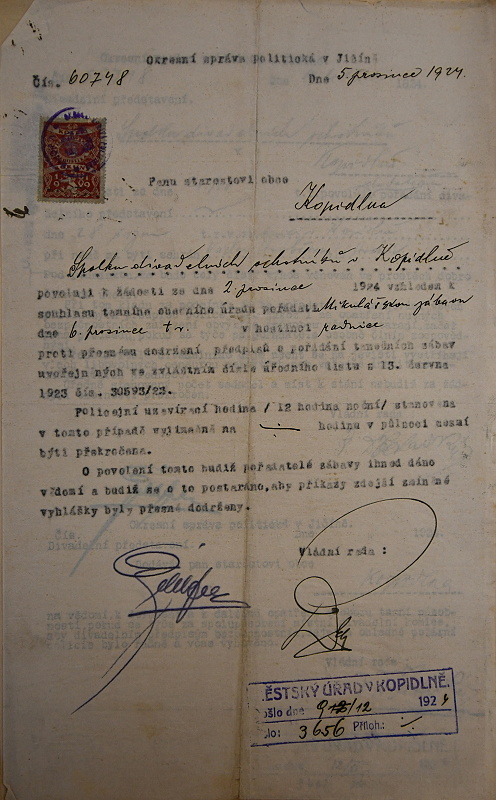 Okresní správa politická v Jičíně
Čís. 60748
Dne 5. prosince 1924.
Panu starostovi obce
Kopidlna
Spolku divadelních ochotníků v Kopidlně
povoluji k žádosti ze dne 2. prosince 1924 vzhledem k
souhlasu tamního obecního úřadu pořádati Mikulášskou zábavu
dne 6. prosince t.r. v hostinci radnice
proti přesnému dodržení předpisů o pořádání tanečních zábav
uveřejněných ve zvláštním čísle úředního listu z 13. června
1923 čís. 30593/23.
Policejní uzavírací hodina / 12 hodina noční/ stanovena
v tomto případě vyjímečně na -.- hodinu v půlnoci nesmí
býti překročena.
O povolení tomto budiž pořadatelé zábavy ihned dáno
vědomí a budiž se o to postaráno, aby příkazy zdejší zmíněné
vyhlášky byly přesně dodrženy.
Vládní rada :
ĚSTSKÝ ÚŘAD V KOPIDLNĚ.
ošlo dne 9/12 1924
lo: 3656 Příloh: -/-